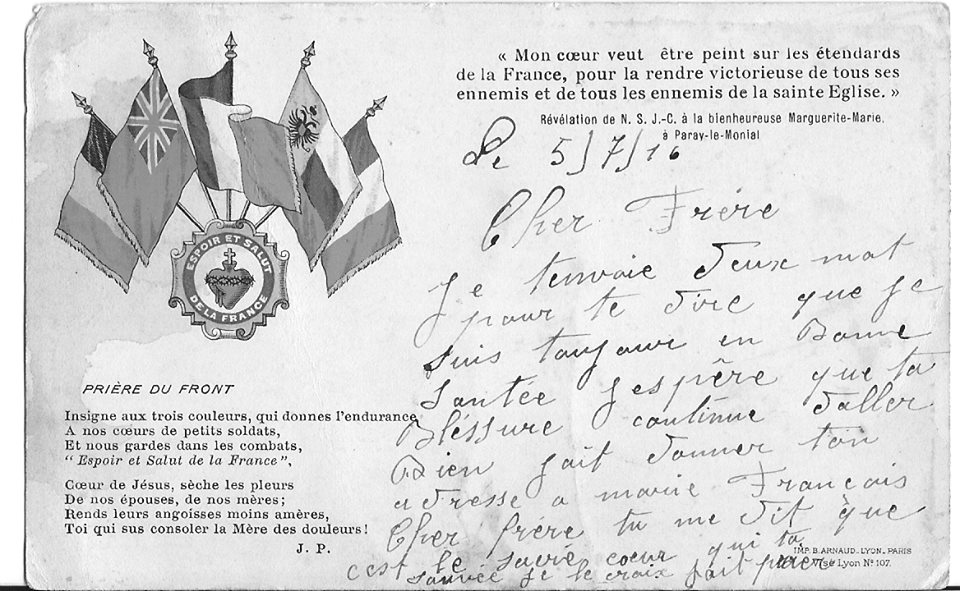 « Mon cœur veut être peint sur les étendards
de la France, pour la rendre victorieuse de tous ses
ennemis et de tous les ennemis de la sainte Eglise. »
Révélation de N. S. J.-C. à la bienheureuse Marguerite-Marie,
à Paray-le-Monial
Le 5/7/16
Cher Frère
Je tenvoie deux mot
pour te dire que je
suis toujour en Bonne
Santée Jespère que ta
Bléssure continue daller
Bien fait donner ton
adresse a marie Francois
Cher frère tu me dit que
cest le sacré coeur qui ta
sauvée je le crois fait
ESPOIR ET SALUT
DE LA FRANCE
PRIÈRE DU FRONT
Insigne aux trois couleurs, qui donnes l'endurance
A nos cœurs de petits soldats,
Et nous gardes dans les combats,
“ Espoir et Salut de la France”,
Cœur de Jésus, sèche les pleurs
De nos épouses, de nos mères;
Rends leurs angoisses moins amères,
Toi qui sus consoler la Mère des douleurs!
J. P.
IMP. B. ARNAUD_LYON_PARIS
Visé Lyon N° 107.